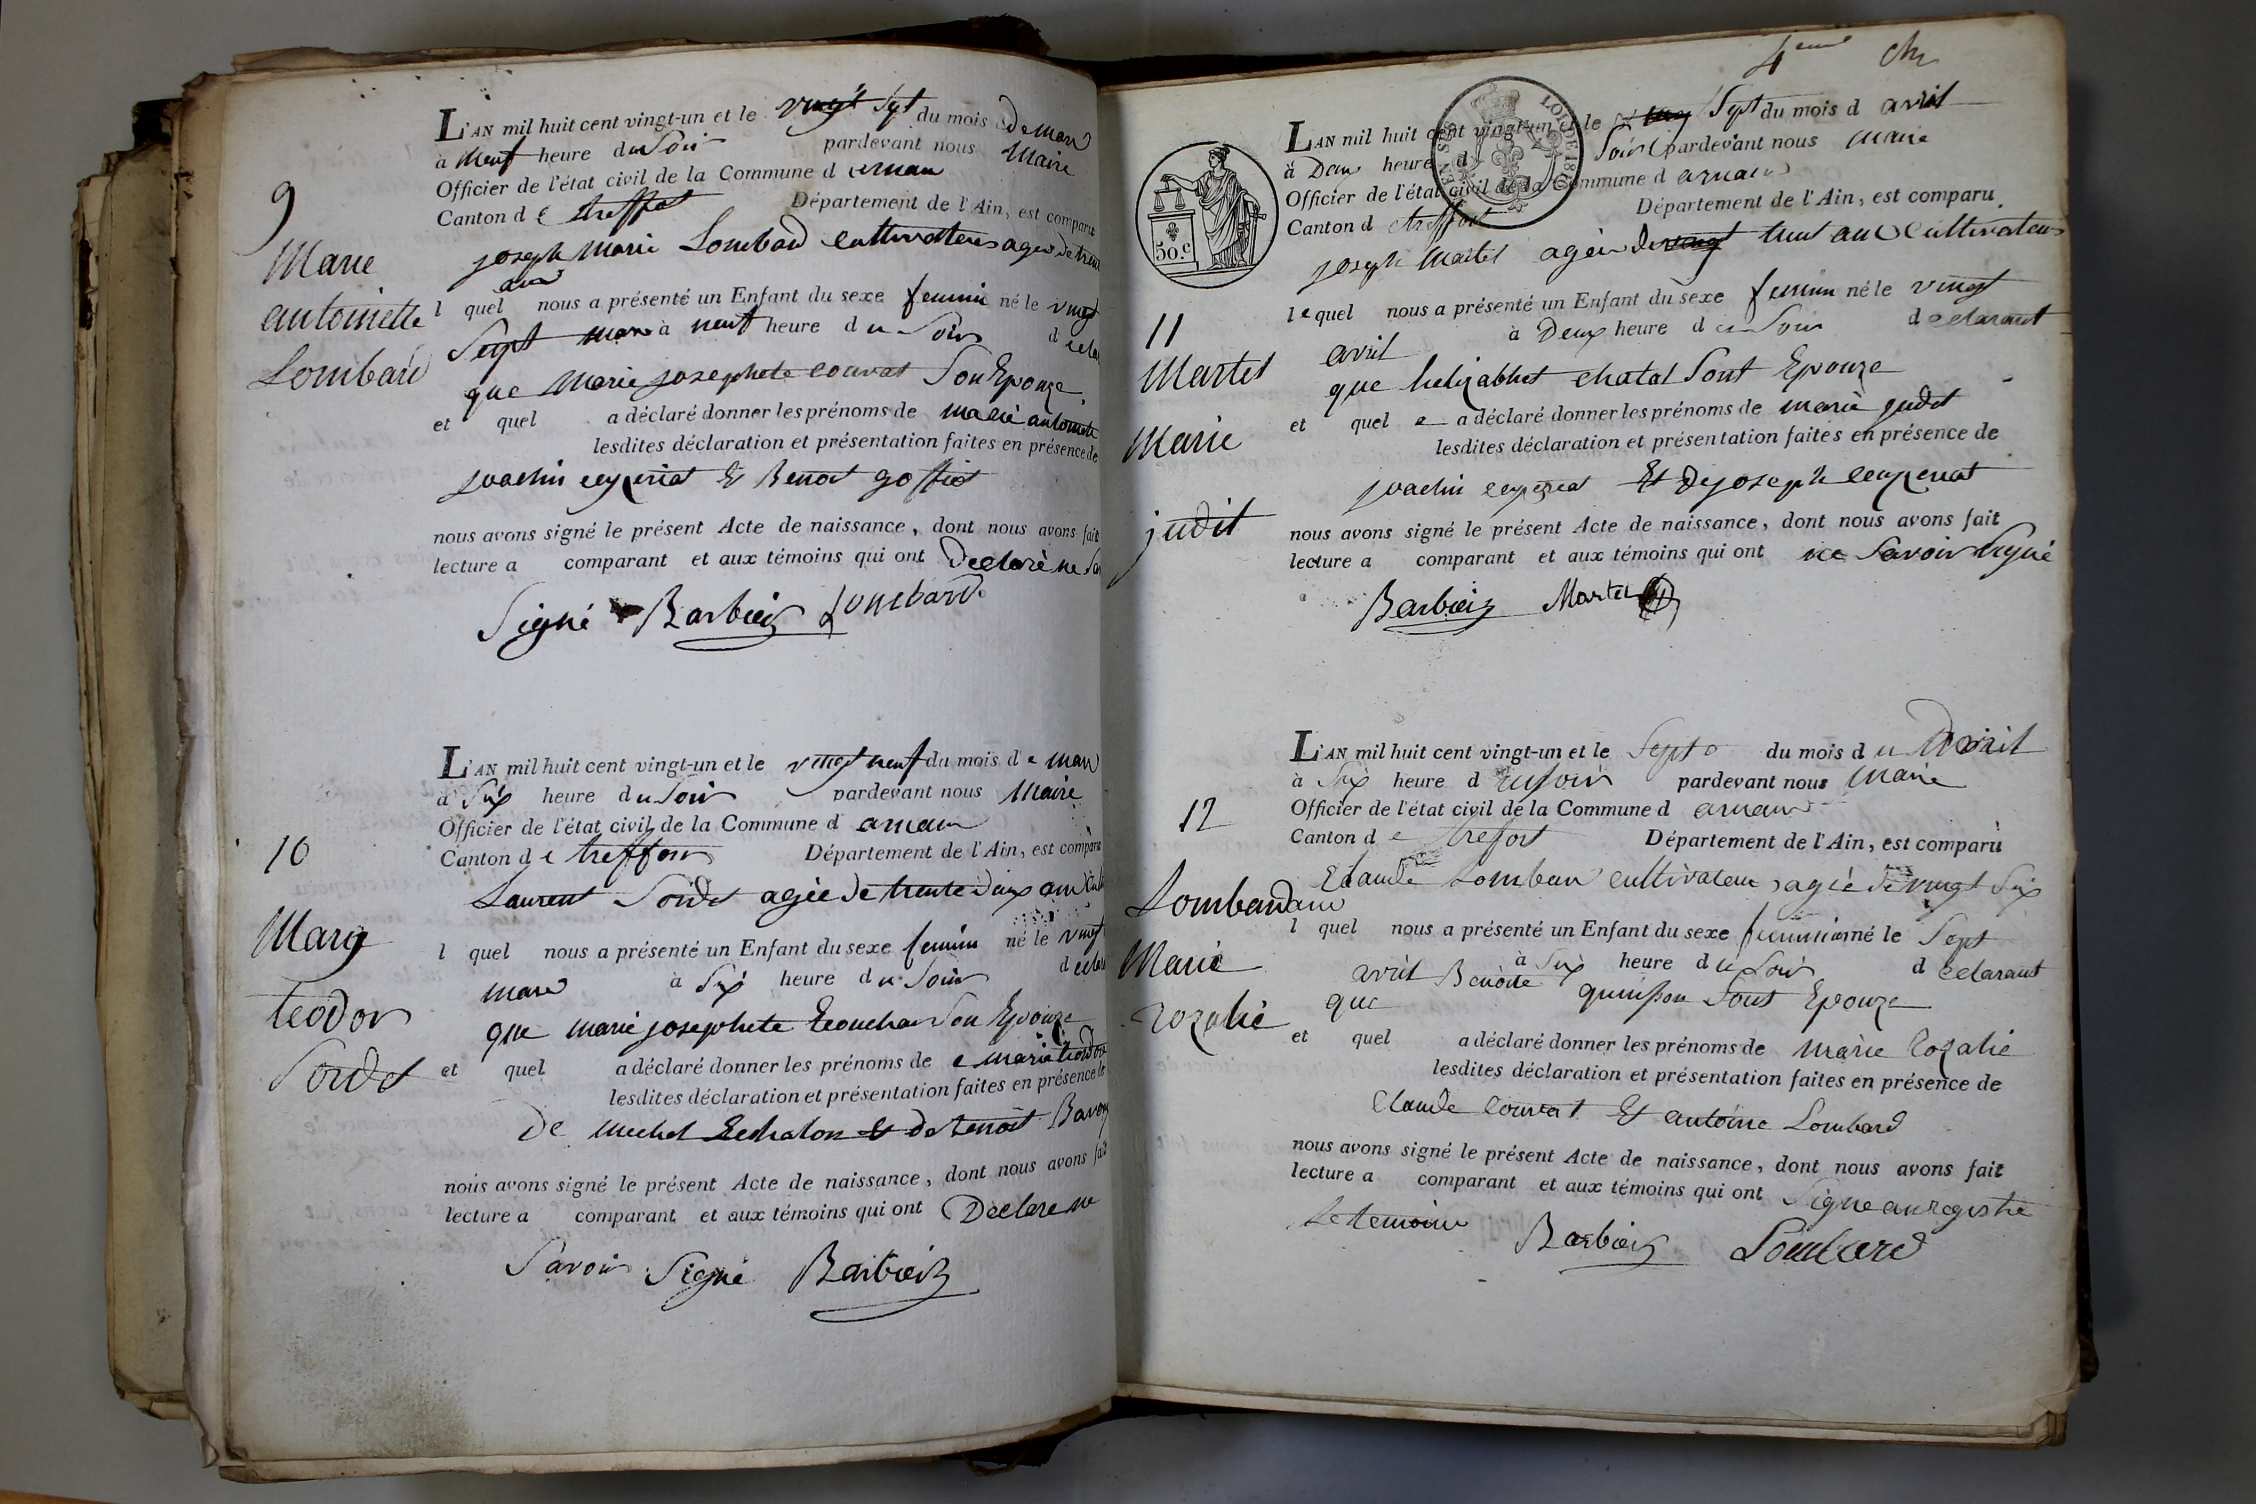 9
Marie
antoinette
Lombard
L'AN mil huit cent vingt-un et le vingt Sept du mois de mars
à neuf heure du Soir pardevant nous Maire
Officier de l'état civil de la Commune d arnam
Canton de treffort Département de l'Ain, est comparu
joseph marie Lombard cultivateur
ans
l quel nous a présenté un Enfant du sexe feminin né le vingt
Sept mars à neuf heure du Soir d
que Marie josephete couvat Son Epouze
et quel a déclaré donner les prénoms de marie antoinette
lesdites déclaration et présentation faites en présence de
joachin ceyzeriat Et Benoit
nous avons signé le présent Acte de naissance, dont nous avons fait
lecture a comparant et aux témoins qui ont Declaré ne
Signé Barbier Lombard
10
Mary
teodor
Sordet
L'AN mil huit cent vingt-un et le vingt neuf du mois de mars
à Six heure du Soir pardevant nous Maire
Officier de l'état civil de la Commune d arnam
Canton de treffort Département de l'Ain, est comparu
Laurent Sordet agée de trente deux ans
l quel nous a présenté un Enfant du sexe feminin né le vingt
mars à Six heure du Soir d
que marie josephete Son Epouze
et quel a déclaré donner les prénoms de marie
lesdites déclaration et présentation faites en présence de
De michel Echalon Et de benoit
nous avons signé le présent Acte de naissance, dont nous avons fait
lecture a comparant et aux témoins qui ont Declare ne
Savoir Signé Barbier
4eme
50.c
LOI DE
11
Martel
Marie
judit
L'AN mil huit cent vingt-un et le Sept du mois d avril
à Deux heure d Soir pardevant nous maire
Officier de l'état civil de la Commune d arnam
Canton d treffort Département de l'Ain, est comparu
joseph Martel agée de ans cultivateur
lequel nous a présenté un Enfant du sexe feminin né le vingt
avril à Deux heure du Soir declarant
que helizabhet chatal Sont Epouze
et quel a déclaré donner les prénoms de marie judit
lesdites déclaration et présentation faites en présence de
joachin ceyzeriat Et De joseph ceyzeriat
nous avons signé le présent Acte de naissance, dont nous avons fait
lecture a comparant et aux témoins qui ont ne Savoir Signé
Barbier Martel
12
Lombard
Marie
rozalie
L'AN mil huit cent vingt-un et le Sept du mois du Avril
à Six heure du soir pardevant nous Maire
Officier de l'état civil de la Commune d arnam
Canton de trefort Département de l'Ain, est comparu
Claude Lombar cultivateur agée de vingt Six
ans
l quel nous a présenté un Enfant du sexe feminin né le Sept
avril à Six heure du Soir declarant
que Benoite Sont Epouze
et quel a déclaré donner les prénoms de marie rozalie
lesdites déclaration et présentation faites en présence de
Claude couvat Et antoine Lombard
nous avons signé le présent Acte de naissance, dont nous avons fait
lecture a comparant et aux témoins qui ont Signe au registre
Le temoin Barbier Lombard